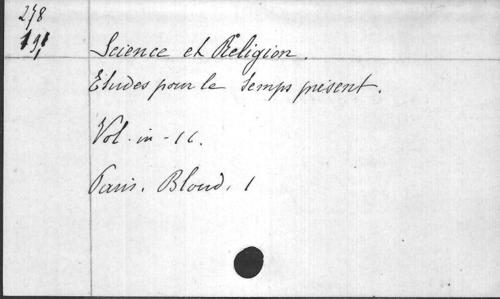 278
Science et Religion.
Etudes pour le temps présent.
Vol. in-16.
Paris. Bloud, 1